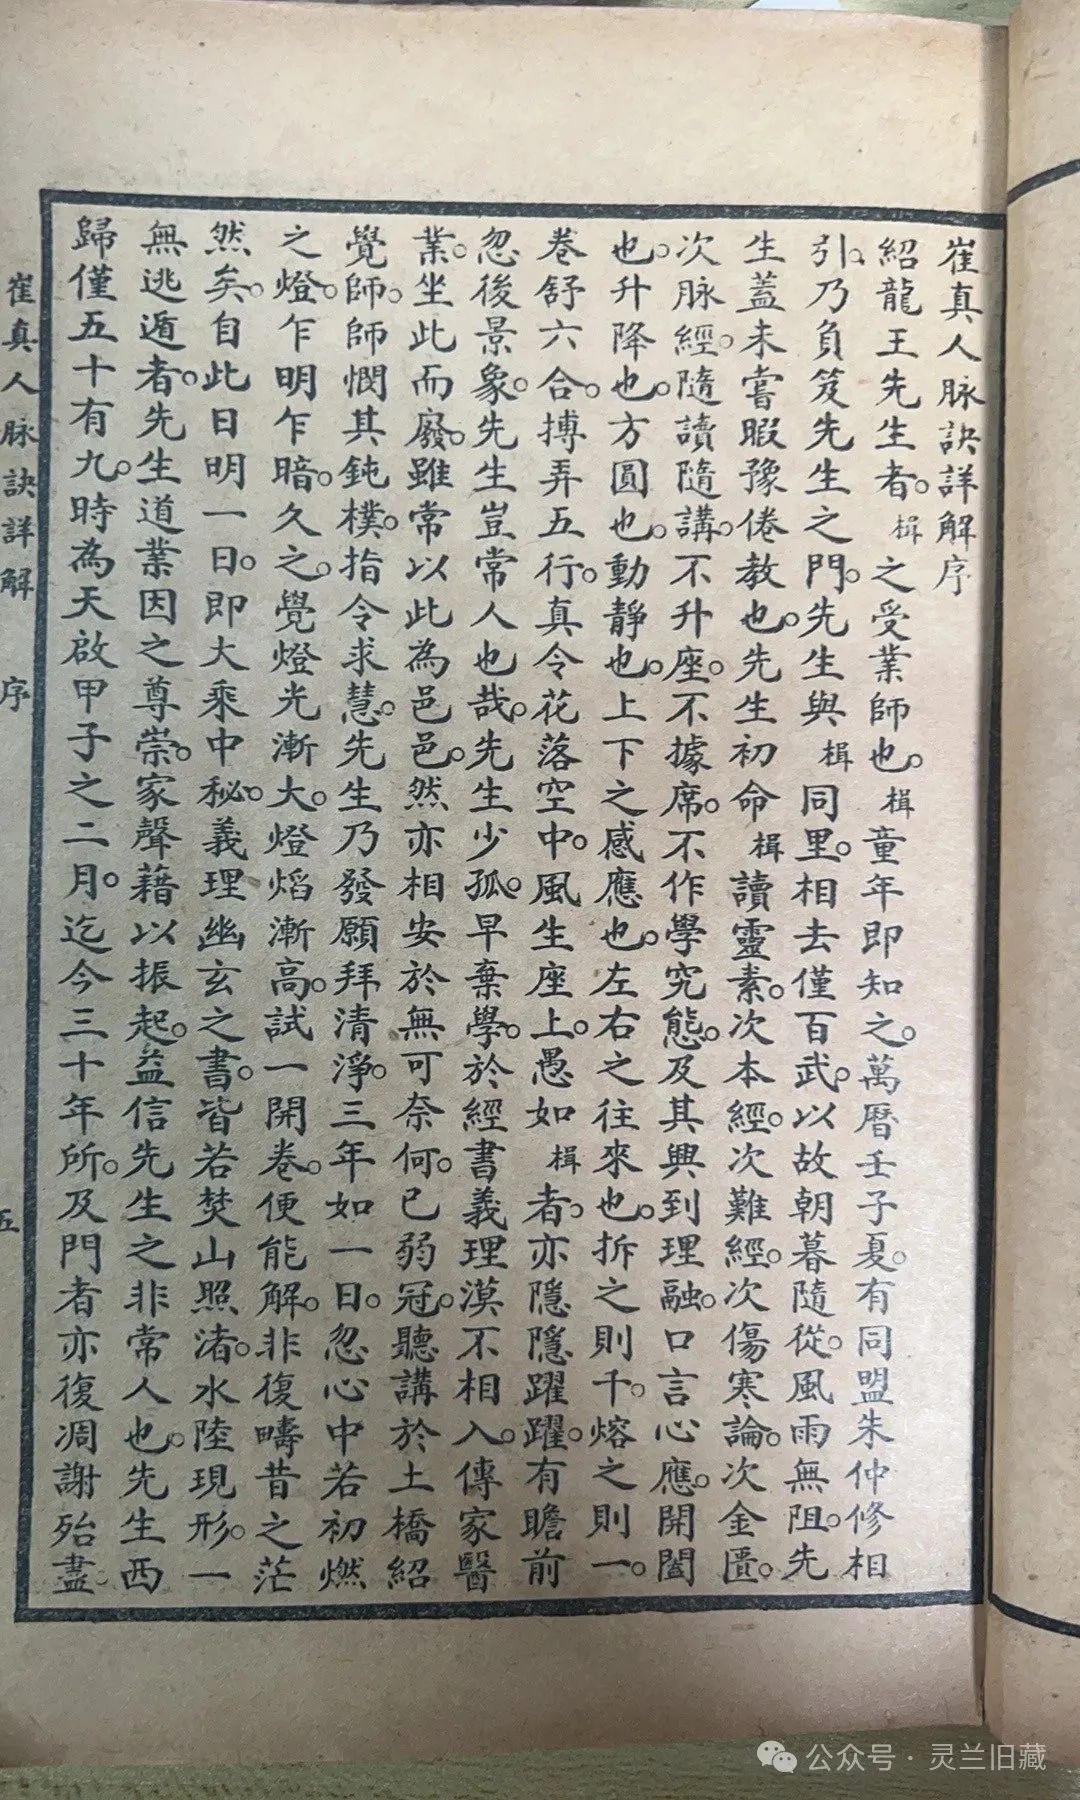 崔真人脉訣詳解序
紹龍王先生者。楫之受業師也。楫童年即知之。萬曆壬子夏。有同盟朱仲修相
引。乃負笈先生之門。先生與楫同里。相去僅百武。以故朝暮隨從。風雨無阻。先
生蓋未嘗暇豫倦教也。先生初命楫讀靈素。次本經。次難經。次傷寒論。次金匱。
次脉經。隨讀隨講。不升座。不據席。不作學究態。及其興到理融。口言心應。開闔
也。升降也。方圓也。動靜也。上下之感應也。左右之往來也。拆之則千。熔之則一。
卷舒六合。搏弄五行。真令花落空中。風生座上。愚如楫者。亦隱隱躍躍。有瞻前
忽後景象。先生豈常人也哉。先生少孤。早棄學。於經書義理漠不相入。傳家醫
業。坐此而廢。雖常以此為邑邑。然亦相安於無可奈何。已弱冠。聽講於土橋紹
覺師。師憫其鈍樸。指令求慧。先生乃發願拜清淨。三年如一日。忽心中若初燃
之燈。乍明乍暗。久之。覺燈光漸大。燈焰漸高。試一開卷。便能解。非復疇昔之茫
然矣。自此日明一日。即大乘中秘。義理幽玄之書。皆若焚山照渚。水陸現形。一
無逃遁者。先生道業因之尊崇。家聲藉以振起。益信先生之非常人也。先生西
歸僅五十有九。時為天啟甲子之二月。迄今三十年所。及門者亦復凋謝殆盡。
崔真人脉訣詳解 序 五
公众号·灵兰旧藏